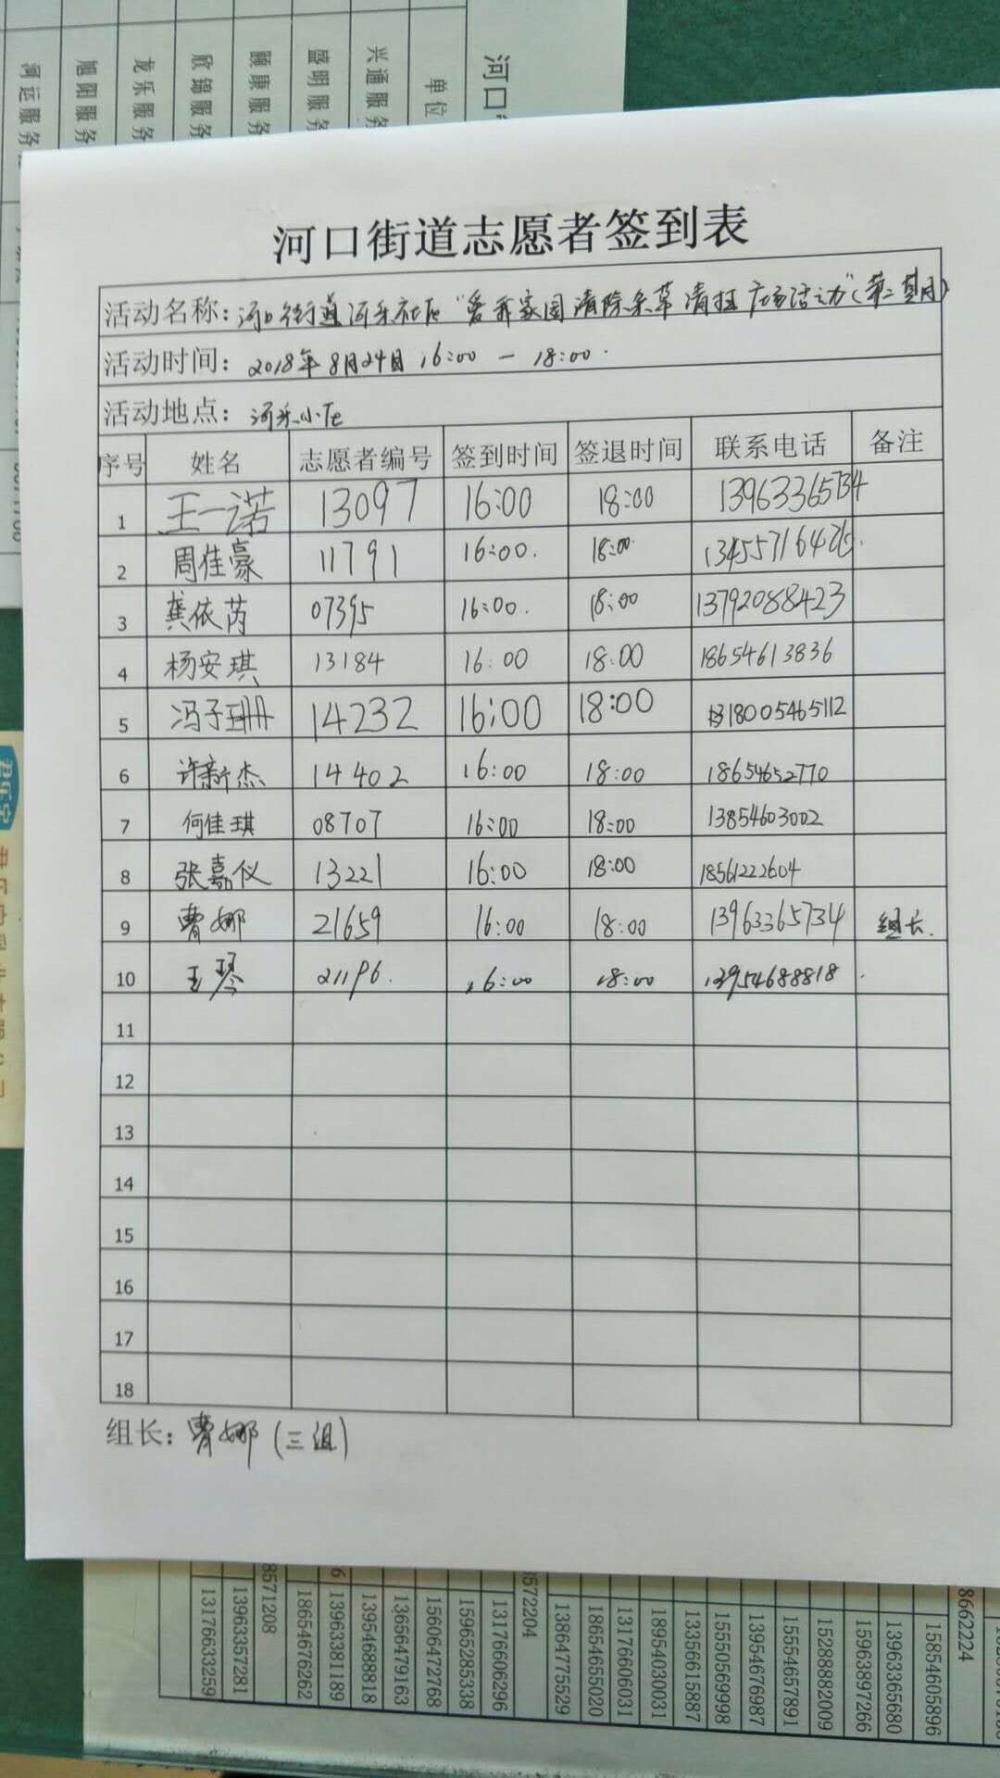 河口
单位
兴通服务
盛明服务
颐康服务
欣锦服务
龙乐服务
旭阳服务
河运服务
河口街道志愿者签到表
活动名称：河口街道河乐社区"爱我家园清除杂草清扫广场活动"(第二期)
活动时间：2018年8月24日 16:00 — 18:00.
活动地点：河乐小区
序号 姓名 志愿者编号 签到时间 签退时间 联系电话 备注
1 王一诺 13097 16:00 18:00 13963365734
2 周佳豪 11791 16:00. 18:00.
3 龚依芮 07395 16:00. 18:00 13792088423
4 杨安琪 13184 16:00 18:00 18654613836
5 冯子珊 14232 16:00 18:00 18005465112
6 许新杰 14402 16:00 18:00 18654652770
7 何佳琪 08707 16:00 18:00 13854603002
8 张嘉仪 13221 16:00 18:00 18561222604
9 曹娜 21659 16:00 18:00 13963365734 组长.
10 王琴 21196. 16:00 18:00 13954688818
11
12
13
14
15
16
17
18
组长：曹娜(三组)
8662224
15854605896
13963365680
15963897266
15288882009
15554657891
13954676987
15550569998
13356615887
18954030031
13176606031
18654655020
13864775529
8572204
13176606296
15965285338
15606472768
13656479163
13954688818
13963381189
18654676262
8571208
13963357281
13176633259